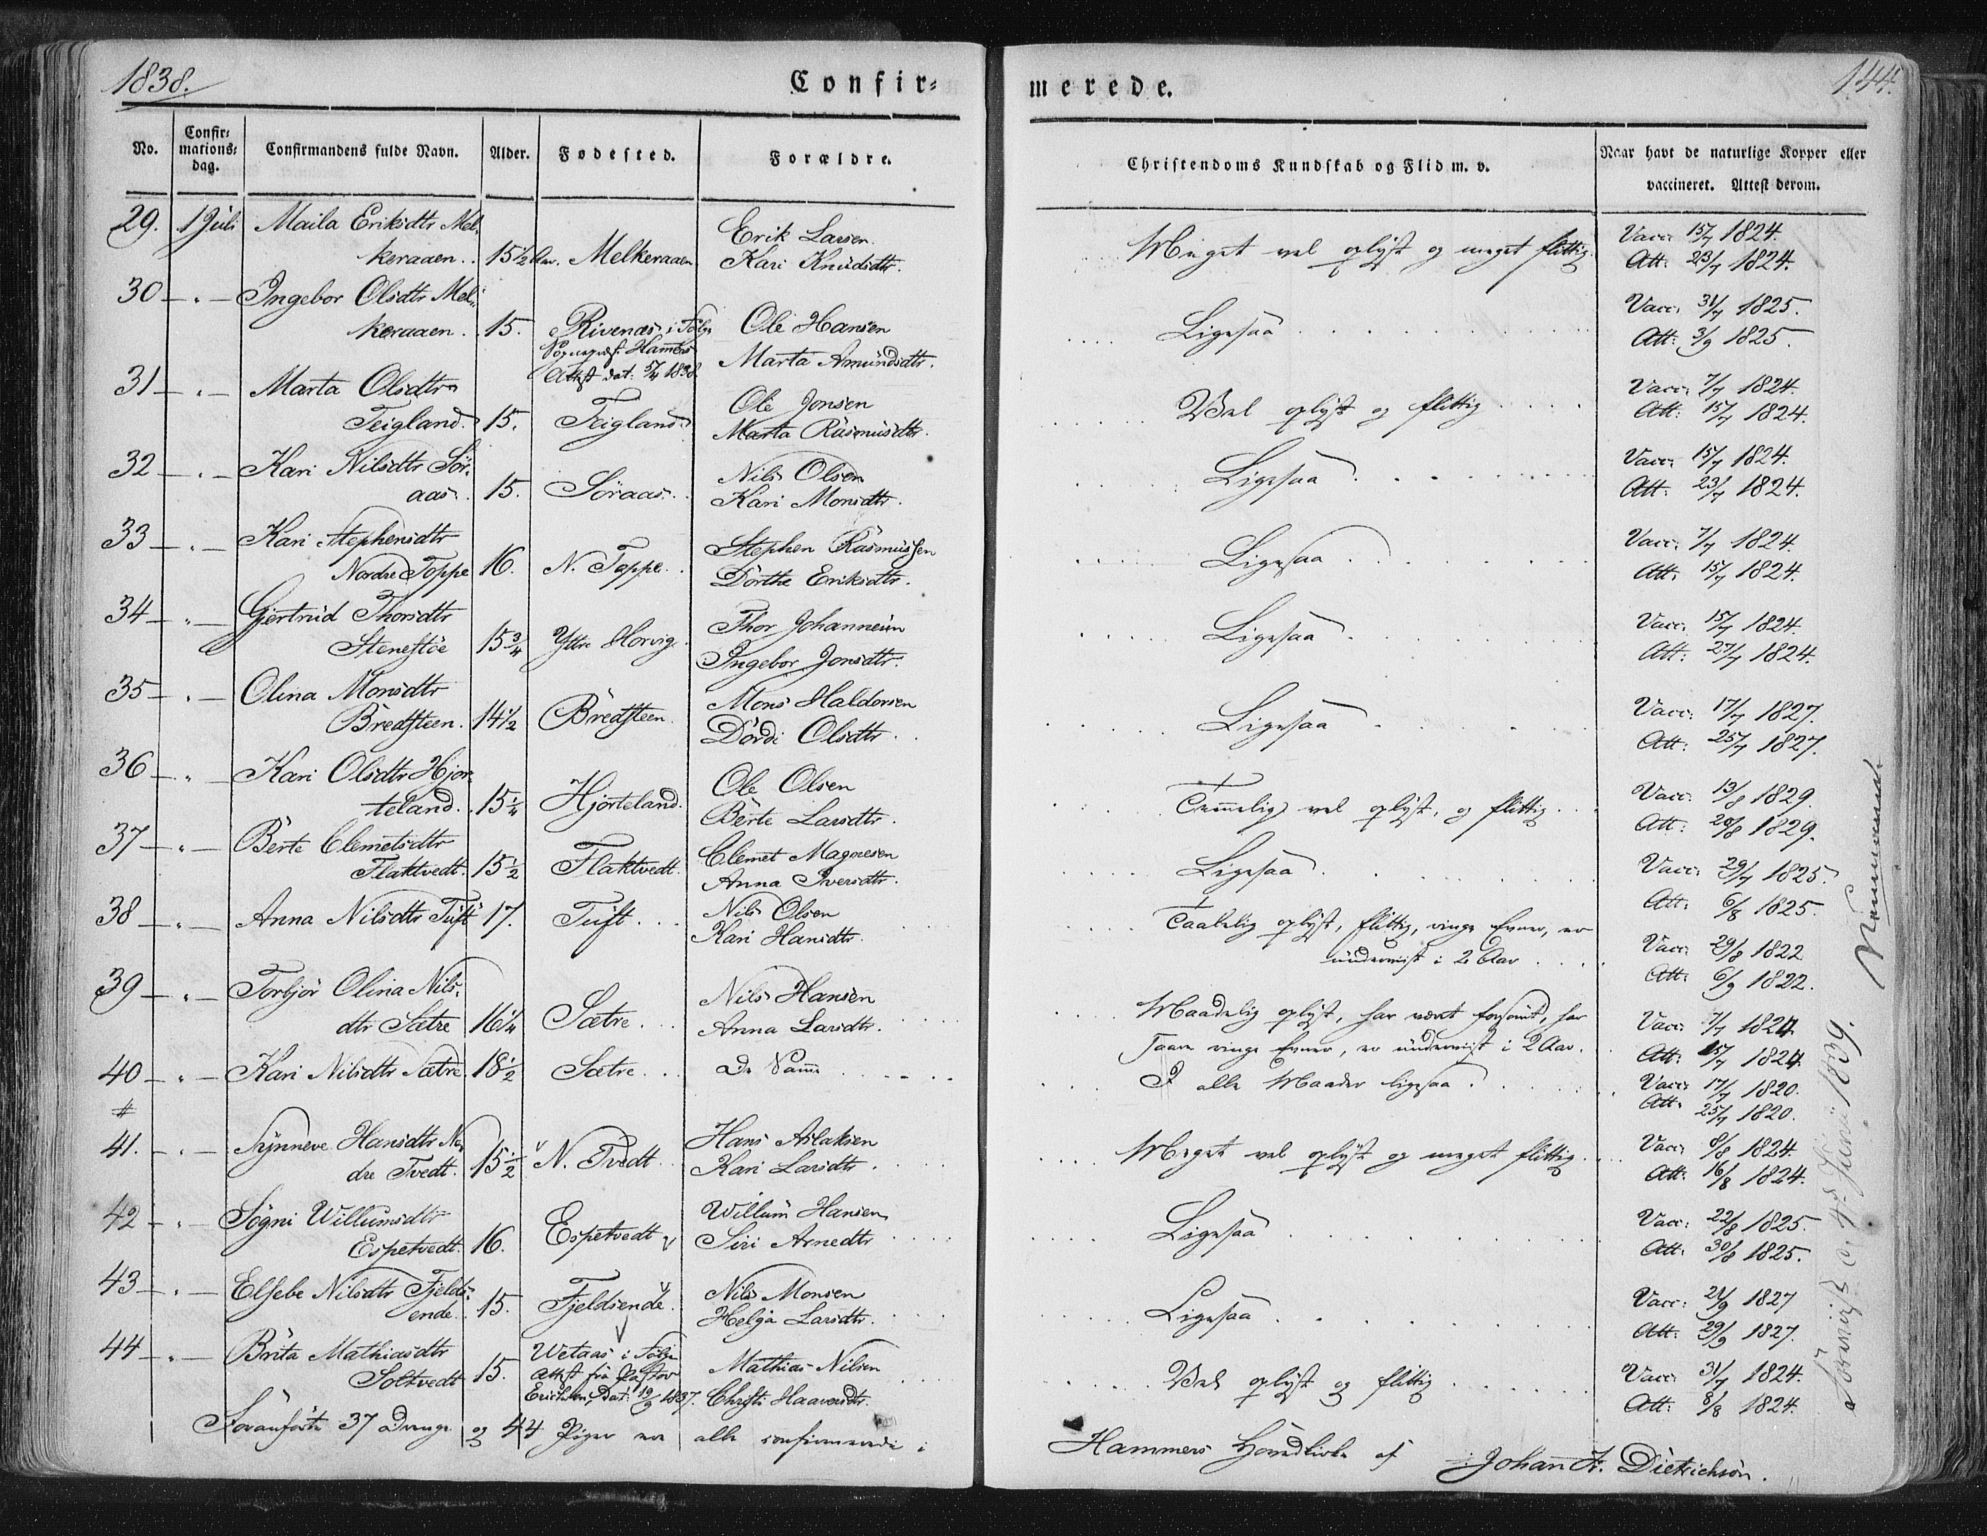 1838.
Confir-
merede.
144.
No.
Confir-
mations-
dag.
Confirmandens fulde Navn.
Alder.
Fødested.
Forældre.
Christendoms Kundskab og Flid m. v.
Naar havt de naturlige Kopper eller
vaccineret. Attest derom.
29. 1 Juli Maila Eriksdtr Mel-
keraaen. 15½ Aar. Melkeraaen
Erik Larsen
Kari Knudsdtr.
Meget vel oplyst og meget flittig.
Vacc: 15/7 1824.
Att: 23/7 1824.
30 — " — Ingebor Olsdtr Mel-
keraaen. 15. Rivenæs i Følge
Sognepræst Hammers
Attest dat: 5/4 1838
Ole Hansen
Marta Amundsdtr.
Ligesaa
Vacc: 31/7 1825.
Att: 3/9 1825.
31 — " — Marta Olsdtr
Teigland. 15. Teigland.
Ole Jonsen
Marta Rasmusdtr.
Vel oplyst og flittig
Vacc: 7/7 1824.
Att: 15/7 1824.
32 — " — Kari Nilsdtr Sør-
aas. 15. Søraas.
Nils Olsen
Kari Monsdtr.
Ligesaa
Vacc: 15/7 1824.
Att: 23/7 1824.
33 — " — Kari Stephensdtr
Nordre Toppe 16. N. Toppe.
Stephen Rasmussen
Dorthe Eriksdtr.
Ligesaa
Vacc: 7/7 1824.
Att: 15/7 1824.
34 — " — Gjertrud Thorsdtr
Stenestøe 15¾ Yttre Horvig.
Thor Johannesen
Ingebor Jonsdtr.
Ligesaa
Vacc: 15/7 1824.
Att: 27/7 1824.
35 — " — Olina Monsdtr
Bredsteen. 14½ Bredsteen.
Mons Haldorsen
Dordi Olsdtr.
Ligesaa
Vacc: 17/7 1827.
Att: 25/7 1827.
36 — " — Kari Olsdtr Hjor-
teland. 15¼ Hjorteland.
Ole Olsen
Berte Larsdtr.
Temmelig vel oplyst, og flittig
Vacc: 13/8 1829.
Att: 20/8 1829.
37 — " — Berte Clemetsdtr
Flaktvedt. 15½ Flaktvedt.
Clemet Magnesen
Anna Iversdtr.
Ligesaa
Vacc: 29/7 1825.
Att: 6/8 1825.
38 — " — Anna Nilsdtr Tuft 17. Tuft.
Nils Olsen
Kari Hansdtr.
Taalelig oplyst, flittig, ringe Evner, er
underviist i 2 Aar
Vacc: 29/8 1822
Att: 6/9 1822.
39 — " — Torbjor Olina Nils-
dtr Sætre 16¼ Sætre.
Nils Hansen
Anna Larsdtr.
Maadelig oplyst, har været forsømt, har
saare ringe Evner, er underviist i 2 Aar.
Vacc: 7/7 1824
Att: 15/7 1824.
40 — " — Kari Nilsdtr Sætre 18½ Sætre.
De Samme
I alle Maader ligesaa.
Vacc: 17/7 1820.
Att: 25/7 1820.
41. — " — Synneve Hansdtr Nor-
dre Tvedt. 15½ N. Tvedt
Hans Aslaksen
Kari Larsdtr.
Meget vel oplyst og meget flittig.
Vacc: 8/8 1824.
Att: 16/8 1824.
42 — " — Sögni Willumsdtr
Espetvedt. 16. Espetvedt
Willum Hansen
Siri Arnedtr
Ligesaa
Vacc: 22/8 1825.
Att: 30/8 1825.
43 — " — Elsebe Nilsdtr Fjelds-
ende. 15. Fjeldsende.
Nils Monsen
Helga Larsdtr.
Ligesaa
Vacc: 21/9 1827
Att: 29/9 1827.
44 — " — Brita Mathiasdtr
Soltvedt 15. Wetaas i Følge
Attest fra Pastor
Erichsen, Dat: 19/9 1837.
Mathias Nilsen
Christi Haavardsdtr.
Vel oplyst og flittig
Vacc: 31/7 1824.
Att: 8/8 1824.
Foranførte 37 Drenge og 44 Piger ere alle confirmerede i
Hammers Hovedkirke af Johan F. Dietrichson.
Juni 1839.